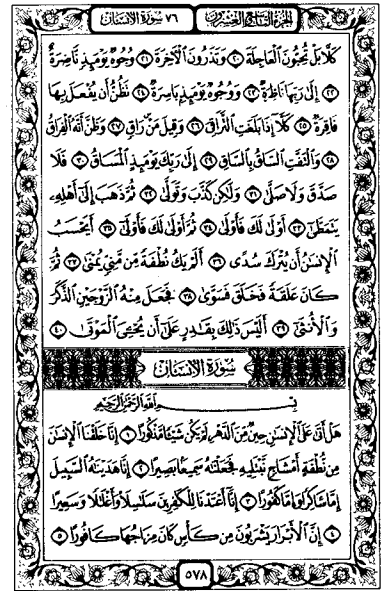 الجزء التاسع والعشرون
٧٦ سورة الإنسان
كَلَّا بَلْ تُحِبُّونَ ٱلْعَاجِلَةَ ٢٠ وَتَذَرُونَ ٱلْآخِرَةَ ٢١ وُجُوهٌ يَوْمَئِذٍ نَّاضِرَةٌ
٢٢ إِلَىٰ رَبِّهَا نَاظِرَةٌ ٢٣ وَوُجُوهٌ يَوْمَئِذٍ بَاسِرَةٌ ٢٤ تَظُنُّ أَن يُفْعَلَ بِهَا
فَاقِرَةٌ ٢٥ كَلَّا إِذَا بَلَغَتِ ٱلتَّرَاقِيَ ٢٦ وَقِيلَ مَنْ رَاقٍ ٢٧ وَظَنَّ أَنَّهُ ٱلْفِرَاقُ
٢٨ وَٱلْتَفَّتِ ٱلسَّاقُ بِٱلسَّاقِ ٢٩ إِلَىٰ رَبِّكَ يَوْمَئِذٍ ٱلْمَسَاقُ ٣٠ فَلَا
صَدَّقَ وَلَا صَلَّىٰ ٣١ وَلَٰكِن كَذَّبَ وَتَوَلَّىٰ ٣٢ ثُمَّ ذَهَبَ إِلَىٰ أَهْلِهِۦ
يَتَمَطَّىٰ ٣٣ أَوْلَىٰ لَكَ فَأَوْلَىٰ ٣٤ ثُمَّ أَوْلَىٰ لَكَ فَأَوْلَىٰ ٣٥ أَيَحْسَبُ
ٱلْإِنسَٰنُ أَن يُتْرَكَ سُدًى ٣٦ أَلَمْ يَكُ نُطْفَةً مِّن مَّنِىٍّ يُمْنَىٰ ٣٧ ثُمَّ
كَانَ عَلَقَةً فَخَلَقَ فَسَوَّىٰ ٣٨ فَجَعَلَ مِنْهُ ٱلزَّوْجَيْنِ ٱلذَّكَرَ
وَٱلْأُنثَىٰ ٣٩ أَلَيْسَ ذَٰلِكَ بِقَٰدِرٍ عَلَىٰ أَن يُحْـِۧىَ ٱلْمَوْتَىٰ ٤٠
سورة الإنسان
بِسْمِ ٱللَّهِ ٱلرَّحْمَٰنِ ٱلرَّحِيمِ
هَلْ أَتَىٰ عَلَى ٱلْإِنسَٰنِ حِينٌ مِّنَ ٱلدَّهْرِ لَمْ يَكُن شَيْـًٔا مَّذْكُورًا ١ إِنَّا خَلَقْنَا ٱلْإِنسَٰنَ
مِن نُّطْفَةٍ أَمْشَاجٍ نَّبْتَلِيهِ فَجَعَلْنَٰهُ سَمِيعًۢا بَصِيرًا ٢ إِنَّا هَدَيْنَٰهُ ٱلسَّبِيلَ
إِمَّا شَاكِرًا وَإِمَّا كَفُورًا ٣ إِنَّا أَعْتَدْنَا لِلْكَٰفِرِينَ سَلَٰسِلَا۟ وَأَغْلَٰلًا وَسَعِيرًا
٤ إِنَّ ٱلْأَبْرَارَ يَشْرَبُونَ مِن كَأْسٍ كَانَ مِزَاجُهَا كَافُورًا ٥
٥٧٨